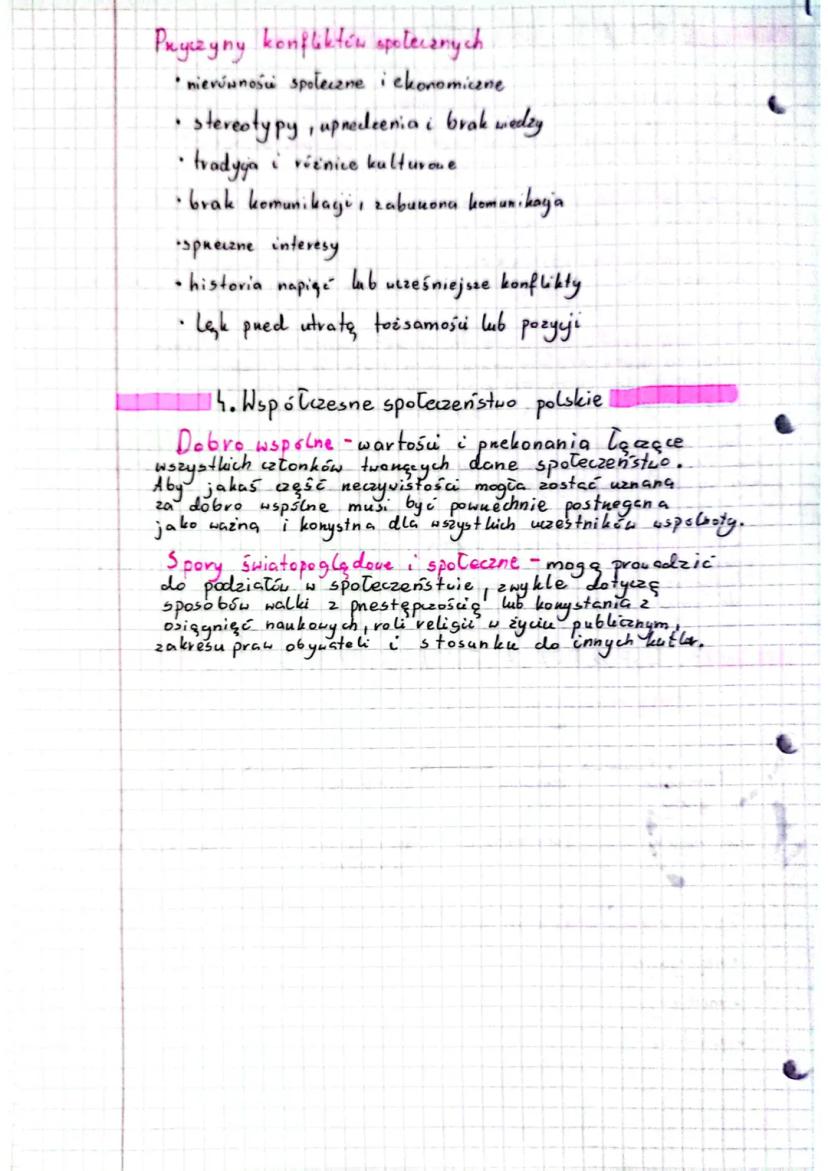 Przyczyny konfliktów społecznych
• nierówności społeczne i ekonomiczne
• stereotypy, uprzedzenia i brak wiedzy
• tradycja i różnice kulturowe
• brak komunikacji, zaburzona komunikacja
• sprzeczne interesy
• historia napięć lub wcześniejsze konflikty
• lęk przed utratą tożsamości lub pozycji
4. Współczesne społeczeństwo polskie
Dobro wspólne - wartości i przekonania łączące
wszystkich członków tworzących dane społeczeństwo.
Aby jakaś część rzeczywistości mogła zostać uznana
za dobro wspólne musi być powszechnie postrzegana
jako ważna i korzystna dla wszystkich uczestników wspólnoty.
Spory światopoglądowe i społeczne - mogą prowadzić
do podziałów w społeczeństwie, zwykle dotyczą
sposobów walki z przestępczością lub korzystania z
osiągnięć naukowych, roli religii w życiu publicznym,
zakresu praw obywateli i stosunku do innych kultur.